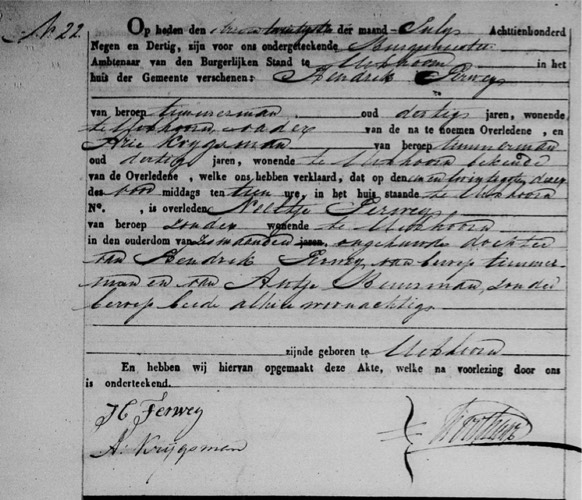 No 22.
Op heden den een twintigste der maand July Achttienhonderd
Negen en Dertig, zijn voor ons ondergeteekende Burgemeester
Ambtenaar van den Burgerlijken Stand te in het
huis der Gemeente verschenen: Hendrik Ferwey
van beroep timmerman oud dertig jaren, wonende
te vader van de na te noemen Overledene, en
Arie Krijgsman van beroep timmerman
oud dertig jaren, wonende te bekende
van de Overledene, welke ons hebben verklaard, dat op den een en twintigste dezer
des voor middags ten tien ure, in het huis staande te
No. , is overleden Neeltje Ferwey
van beroep zonder wonende te
in den ouderdom van maanden jaren, ongehuwde dochter
van Hendrik Ferwey, van beroep timmer-
man en van Antje zonder
beroep beide alhier woonachtig.
zijnde geboren te
En hebben wij hiervan opgemaakt deze Akte, welke na voorlezing door ons
is onderteekend.
H Ferwey
A. Krijgsman